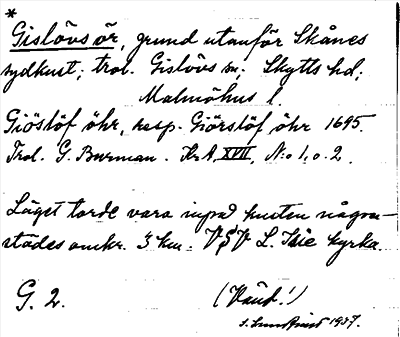 *
Gislövs ör, grund utanför Skånes
sydkust; trol. Gislövs sn; Skytts hd;
Malmöhus l.
Giöstöf öhr, resp. Giörslöf öhr 1695.
Trol. G. Burman. Kr A, XVII, N:o 1, o. 2.
Läget torde vara invid kusten någon-
städes omkr. 3 km. VSV L. Isie kyrka.
G. 2.
(Vänd!)
1937.